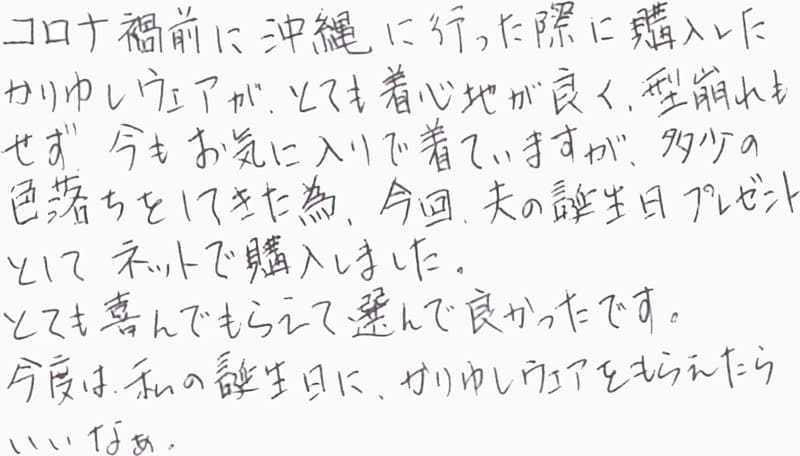 コロナ禍前に沖縄に行った際に購入した
かりゆしウェアが、とても着心地が良く、型崩れも
せず 今もお気に入りで着ていますが、多少の
色落ちをしてきた為、今回、夫の誕生日プレゼント
として ネットで購入しました。
とても喜んでもらえて選んで良かったです。
今度は、私の誕生日に、かりゆしウェアをもらえたら
いいなぁ。